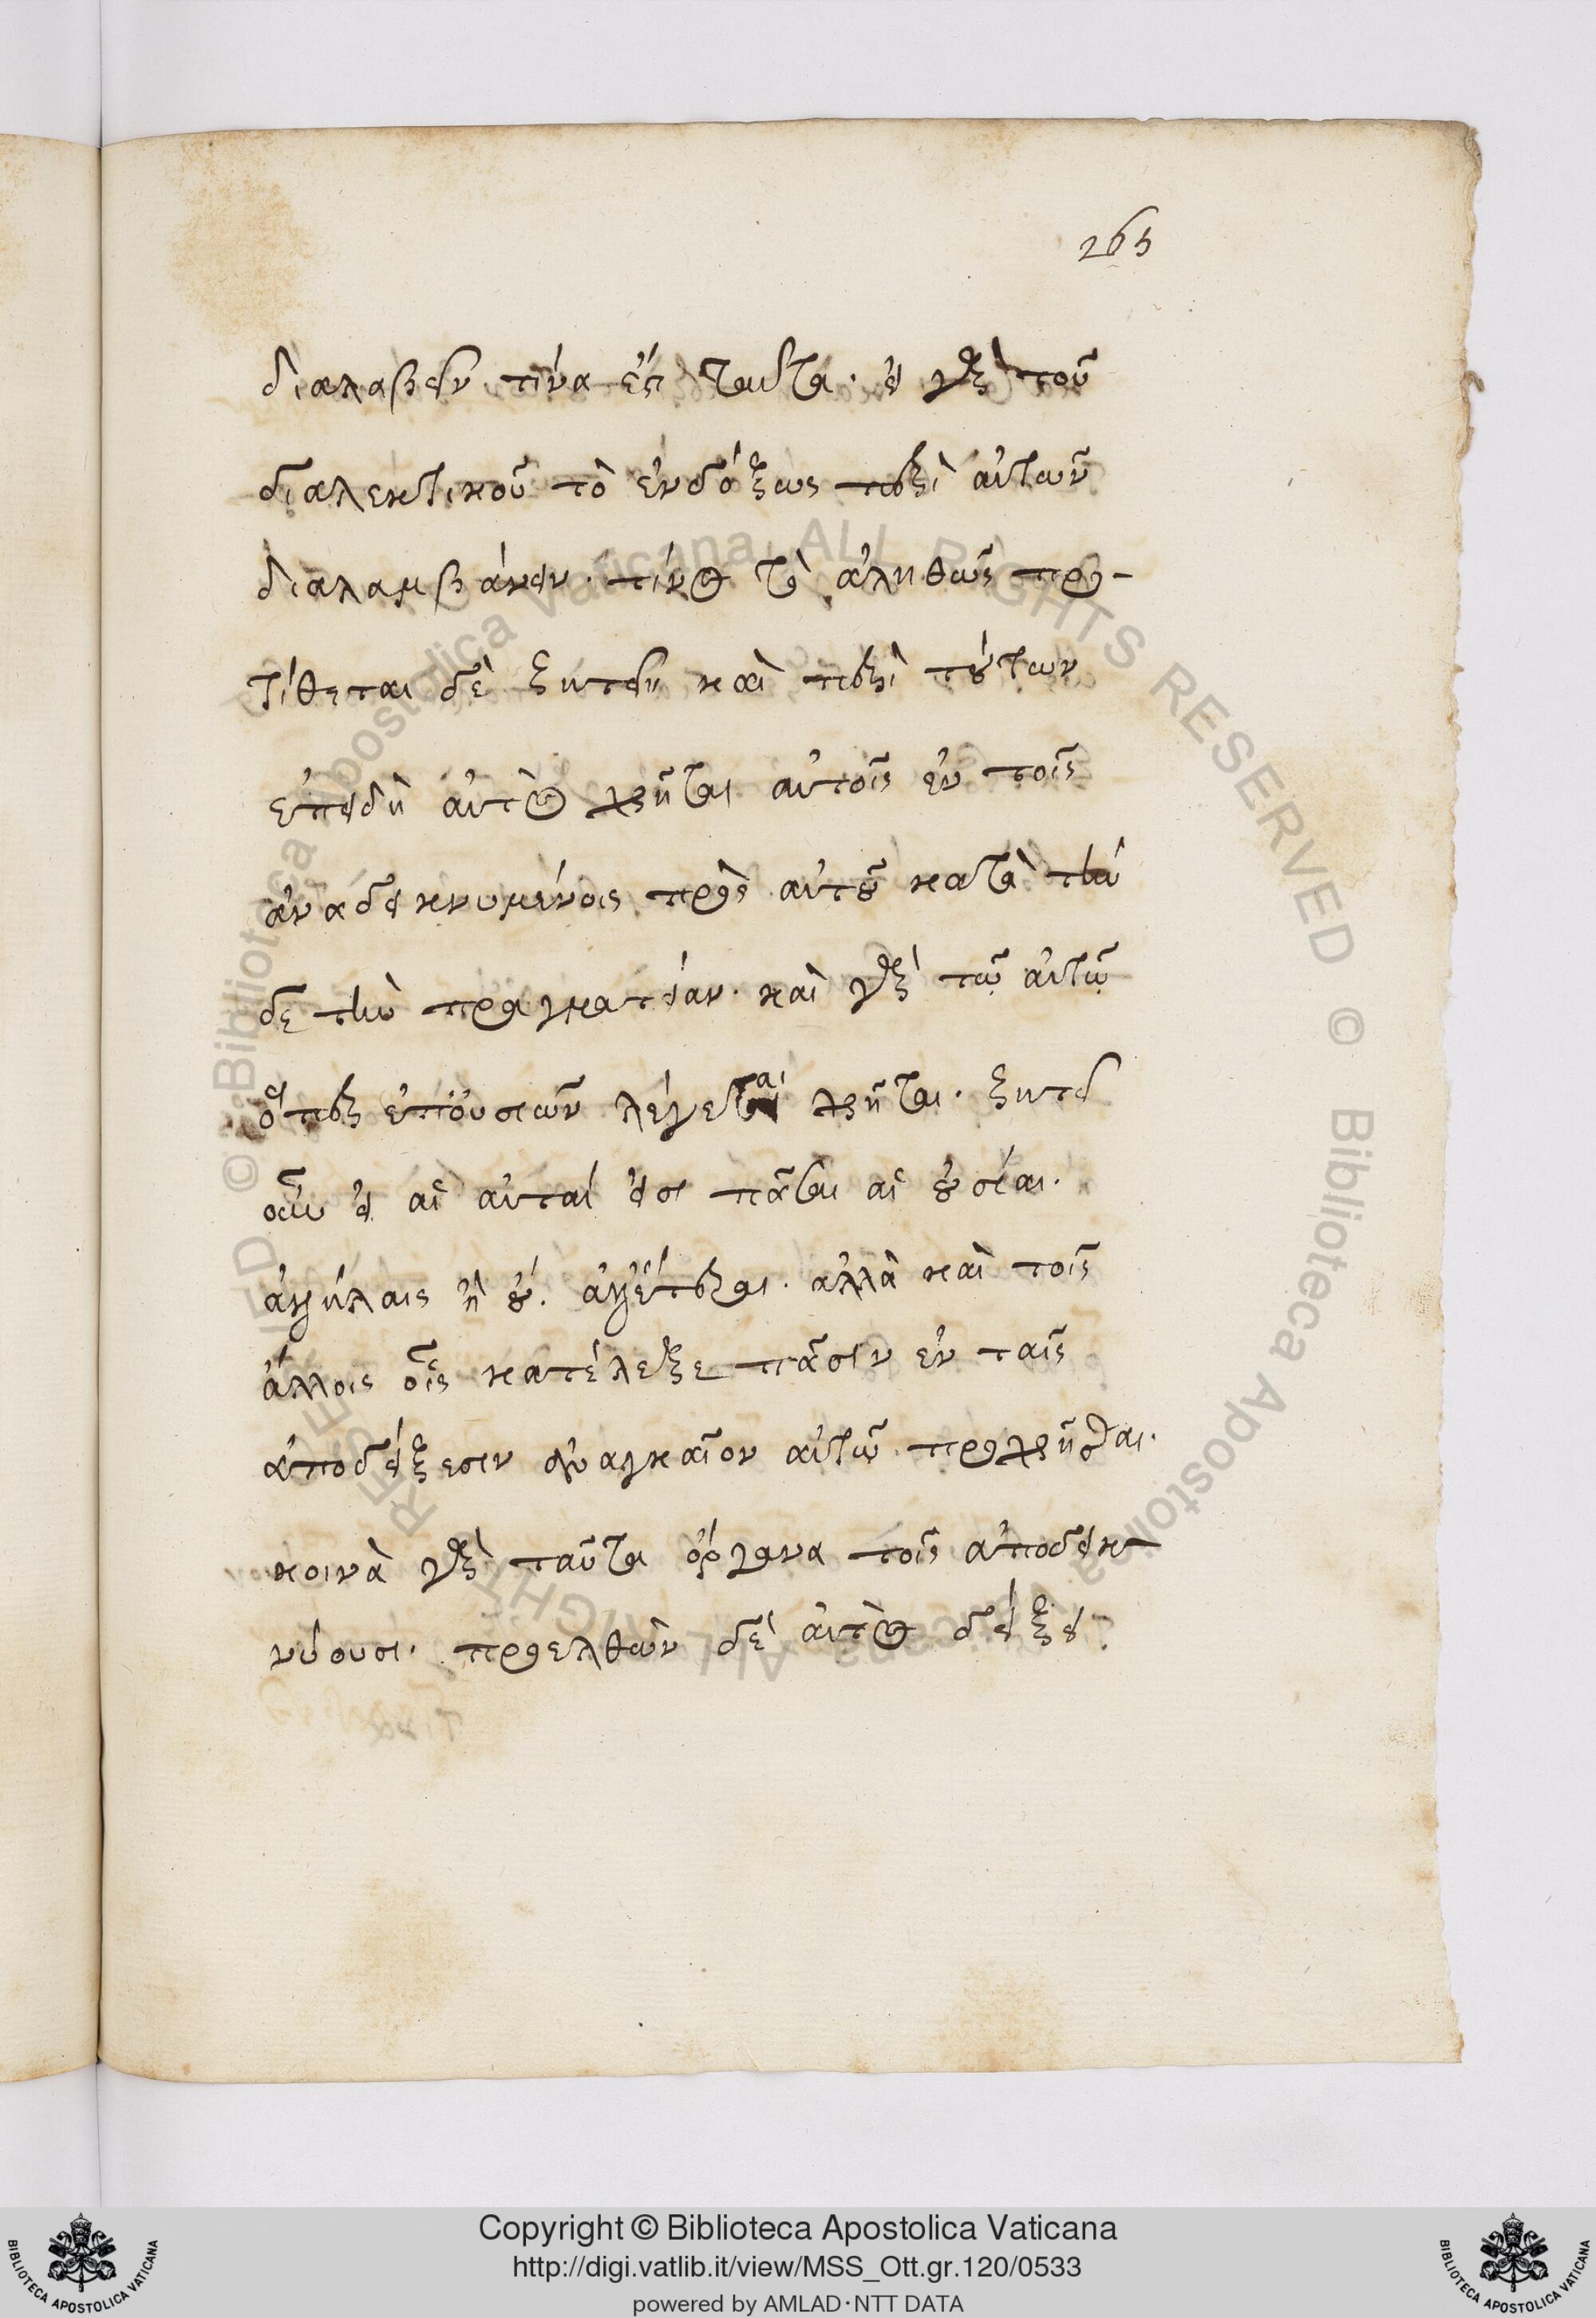 265
διαλαβεῖν τίνα ἐστὶ ταῦτα. εἰ γὰρ τοῦ
διαλεκτικοῦ τὸ ἐνδόξως περὶ αὐτῶν
διαλαμβάνειν. τίνος τὸ ἀληθῶς προ-
τίθεται δὲ ζητεῖν καὶ περὶ τούτων
ἐπειδὴ αὐτὸς χρῆται αὐτοῖς ἐν τοῖς
ἀναδεικνυμένοις πρὸς αὐτοῦ κατὰ τήν
δε τὴν πραγματείαν. καὶ γὰρ τῷ αὐτῷ
ὅπερ ἐπὶ οὐσιῶν λέγεται χρῆται. ζητεῖ
οὖν εἰ αἱ αὐταί εἰσι πᾶσαι αἱ οὐσίαι.
ἀλλήλαις ἢ οὔ. ἀλλ' ἕτεραι. ἀλλὰ καὶ τοῖς
ἄλλοις οἷς κατέλεξε πᾶσιν ἐν ταῖς
ἀποδείξεσιν ἀναγκαῖον αὐτῷ προχρῆσθαι.
κοινὰ γὰρ ταῦτα ὄργανα τοῖς ἀποδεικ-
νύουσι. προελθὼν δὲ αὐτὸς δείξει
© Biblioteca Apostolica Vaticana ALL RIGHTS RESERVED
Copyright © Biblioteca Apostolica Vaticana
http://digi.vatlib.it/view/MSS_Ott.gr.120/0533
powered by AMLAD·NTT DATA
BIBLIOTECA APOSTOLICA VATICANA
BIBLIOTECA APOSTOLICA VATICANA